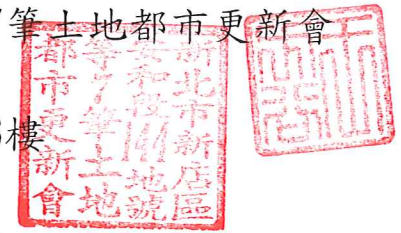 筆土地都市更新會
樓
新北市新店區
和段地號
等7筆土地
都市更新會